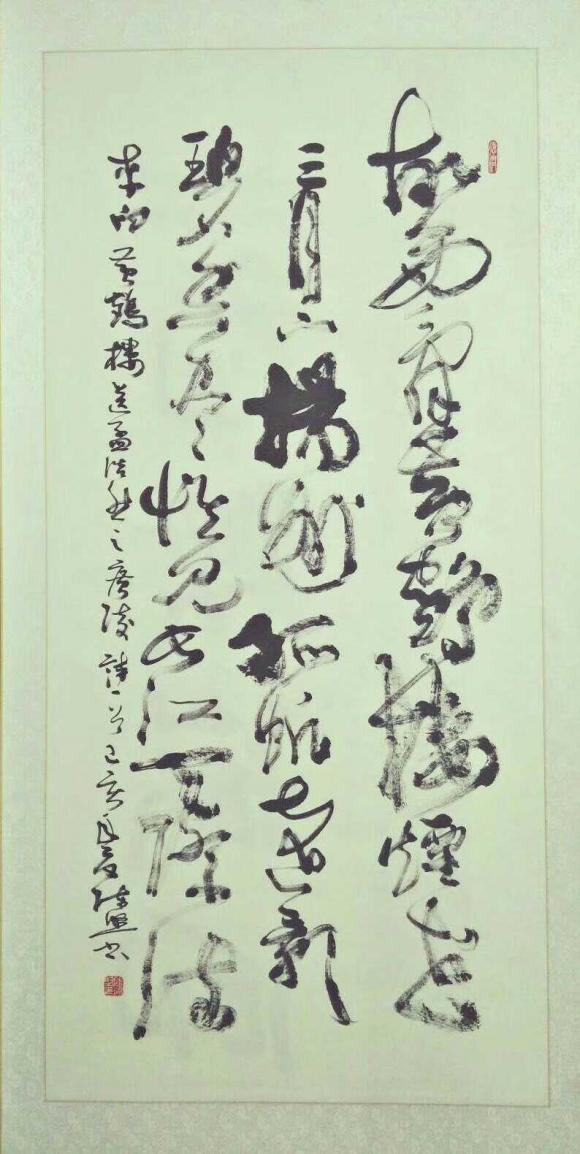 故人西辭黃鶴樓煙花
三月下揚州孤帆遠影
碧空盡惟見長江天際流
李白黃鶴樓送孟浩然之廣陵詩一首己亥夏書